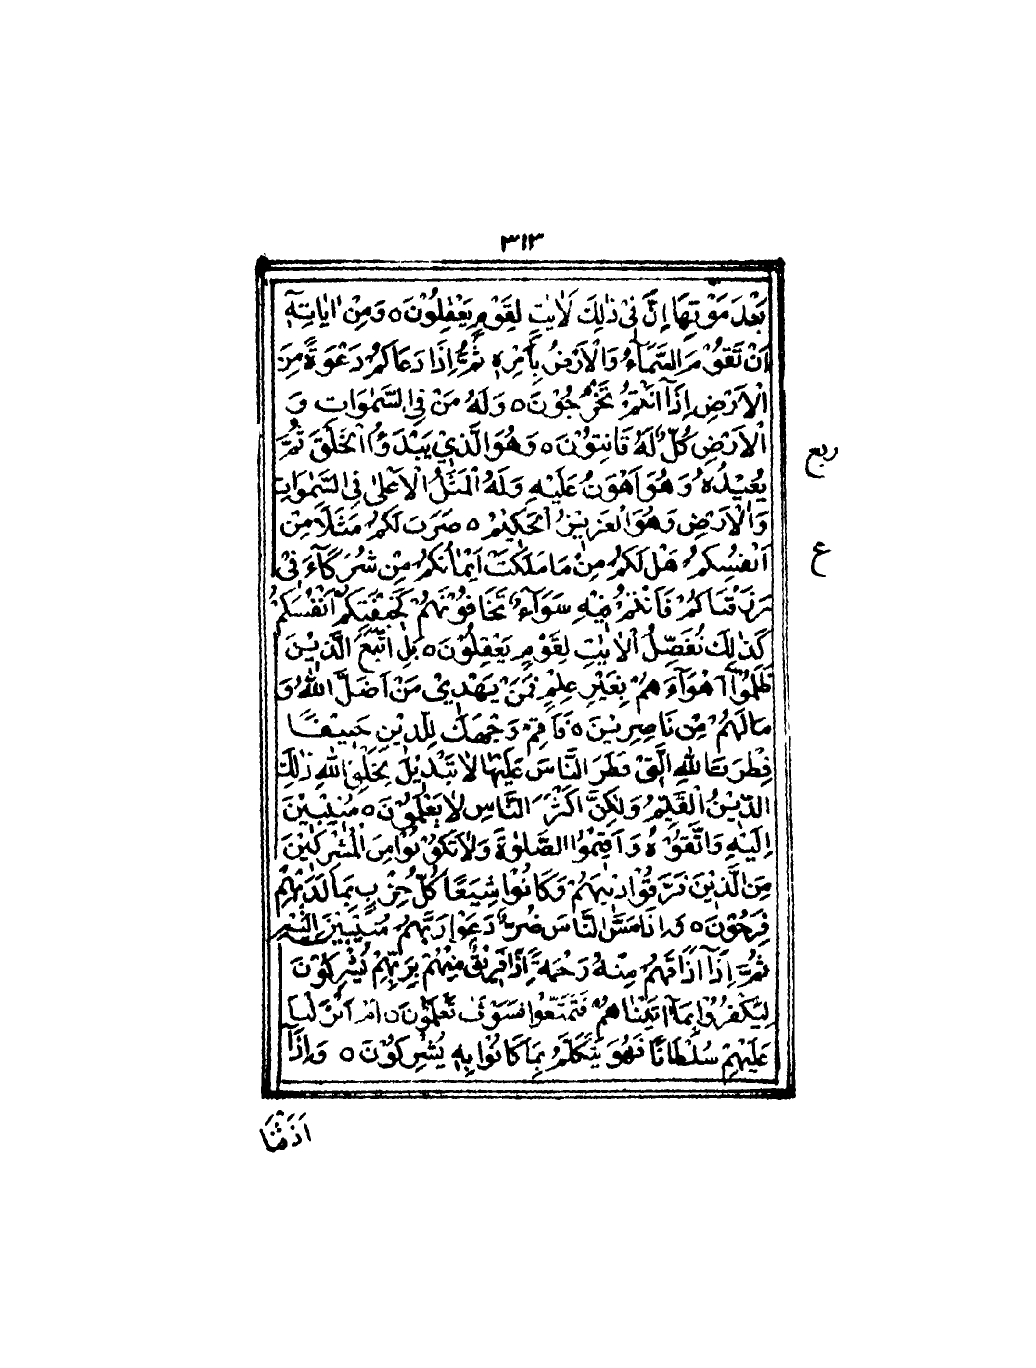 ٣١٣
بَعْدَ مَوْتِهَا إِنَّ فِيْ ذٰلِكَ لَاٰيٰتٍ لِقَوْمٍ يَعْقِلُوْنَ ○ وَمِنْ اٰيَاتِهٖٓ
اَنْ تَقُوْمَ السَّمَآءُ وَالْاَرْضُ بِأَمْرِهٖ ثُمَّ إِذَا دَعَاكُمْ دَعْوَةً مِنَ
الْاَرْضِ إِذَآ اَنْتُمْ تَخْرُجُوْنَ ○ وَلَهُ مَنْ فِي السَّمٰوَاتِ وَ
الْاَرْضِ كُلٌّ لَهُ قَانِتُوْنَ ○ وَهُوَ الَّذِيْ يَبْدَؤُا الْخَلْقَ ثُمَّ
يُعِيْدُهُ وَهُوَ اَهْوَنُ عَلَيْهِ وَلَهُ الْمَثَلُ الْاَعْلٰى فِي السَّمٰوَاتِ
وَالْاَرْضِ وَهُوَ الْعَزِيْزُ الْحَكِيْمُ ○ ضَرَبَ لَكُمْ مَثَلًا مِنْ
اَنْفُسِكُمْ هَلْ لَكُمْ مِنْ مَا مَلَكَتْ اَيْمَانُكُمْ مِنْ شُرَكَآءَ فِيْ
رَزَقْنَاكُمْ فَاَنْتُمْ فِيْهِ سَوَآءٌ تَخَافُوْنَهُمْ كَخِيْفَتِكُمْ اَنْفُسَكُمْ
كَذٰلِكَ نُفَصِّلُ الْاٰيٰتِ لِقَوْمٍ يَعْقِلُوْنَ ○ بَلِ اتَّبَعَ الَّذِيْنَ
ظَلَمُوْآ اَهْوَآءَهُمْ بِغَيْرِ عِلْمٍ فَمَنْ يَهْدِيْ مَنْ اَضَلَّ اللهُ وَ
مَا لَهُمْ مِنْ نَاصِرِيْنَ ○ فَاَقِمْ وَجْهَكَ لِلدِّيْنِ حَنِيْفًا
فِطْرَتَ اللهِ الَّتِيْ فَطَرَ النَّاسَ عَلَيْهَا لَا تَبْدِيْلَ لِخَلْقِ اللهِ ذٰلِكَ
الدِّيْنُ الْقَيِّمُ وَلٰكِنَّ اَكْثَرَ النَّاسِ لَا يَعْلَمُوْنَ ○ مُنِيْبِيْنَ
اِلَيْهِ وَاتَّقُوْهُ وَاَقِيْمُوا الصَّلٰوةَ وَلَا تَكُوْنُوْا مِنَ الْمُشْرِكِيْنَ
مِنَ الَّذِيْنَ فَرَّقُوْا دِيْنَهُمْ وَكَانُوْا شِيَعًا كُلُّ حِزْبٍ بِمَا لَدَيْهِمْ
فَرِحُوْنَ ○ وَإِذَا مَسَّ النَّاسَ ضُرٌّ دَعَوْا رَبَّهُمْ مُنِيْبِيْنَ إِلَيْهِ
ثُمَّ إِذَآ اَذَاقَهُمْ مِنْهُ رَحْمَةً إِذَا فَرِيْقٌ مِنْهُمْ بِرَبِّهِمْ يُشْرِكُوْنَ
لِيَكْفُرُوْا بِمَآ اٰتَيْنَاهُمْ فَتَمَتَّعُوْا فَسَوْفَ تَعْلَمُوْنَ ○ اَمْ اَنْزَلْنَا
عَلَيْهِمْ سُلْطَانًا فَهُوَ يَتَكَلَّمُ بِمَا كَانُوْا بِهٖ يُشْرِكُوْنَ ○ وَإِذَآ
ربع
ع
اَذَقْنَا